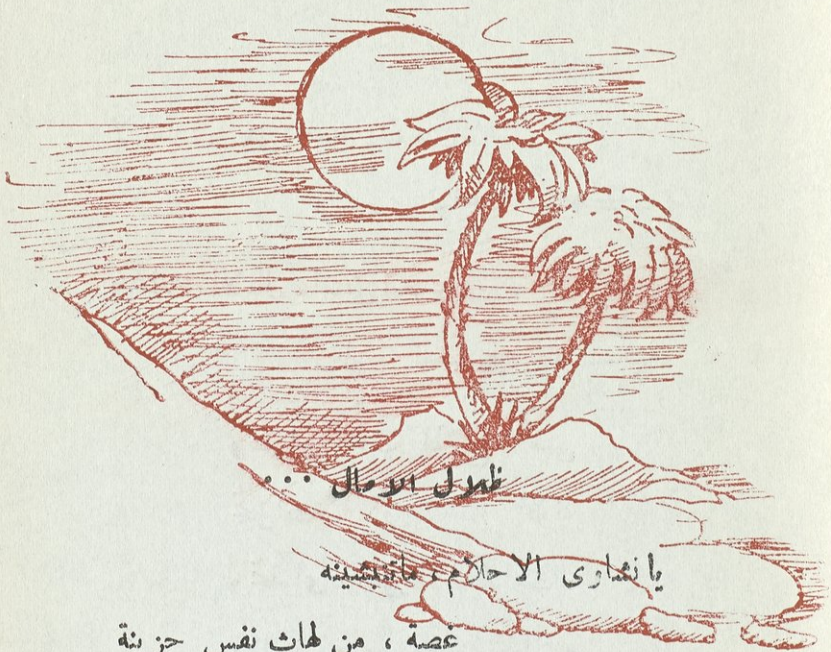 ظلال الامال ...
يا نشاوى الاحلام ،
غصة ، من لهاث نفس حزينة